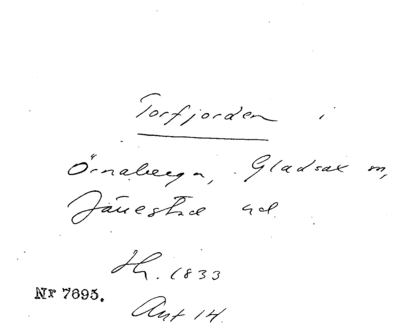 Torfjorden i
Örnaberga, Gladsax m,
Järrestad hd
Hr. 1833
Nr 7695.
Ant 14.